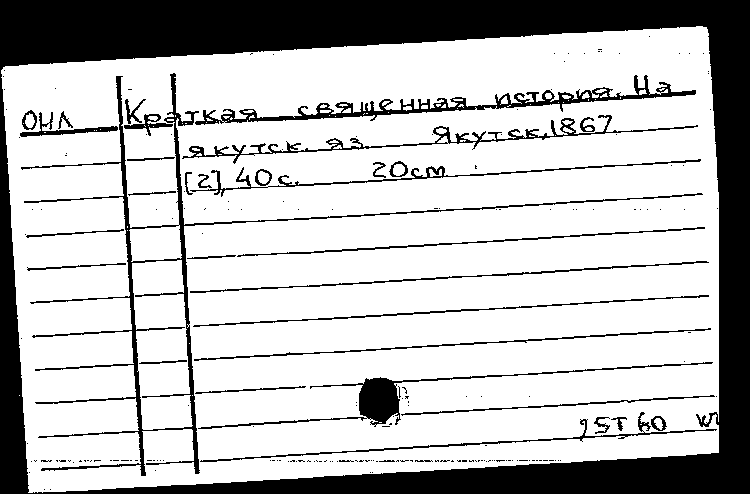 ОНЛ Краткая священная история. На
якутск. яз. Якутск, 1867.
[2], 40 с. 20 cm